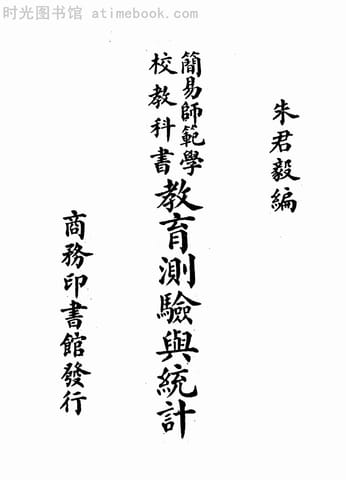 时光图书馆 - atimebook.com
朱君毅編
簡易師範學
校教科書
教育測驗與統計
商務印書館發行